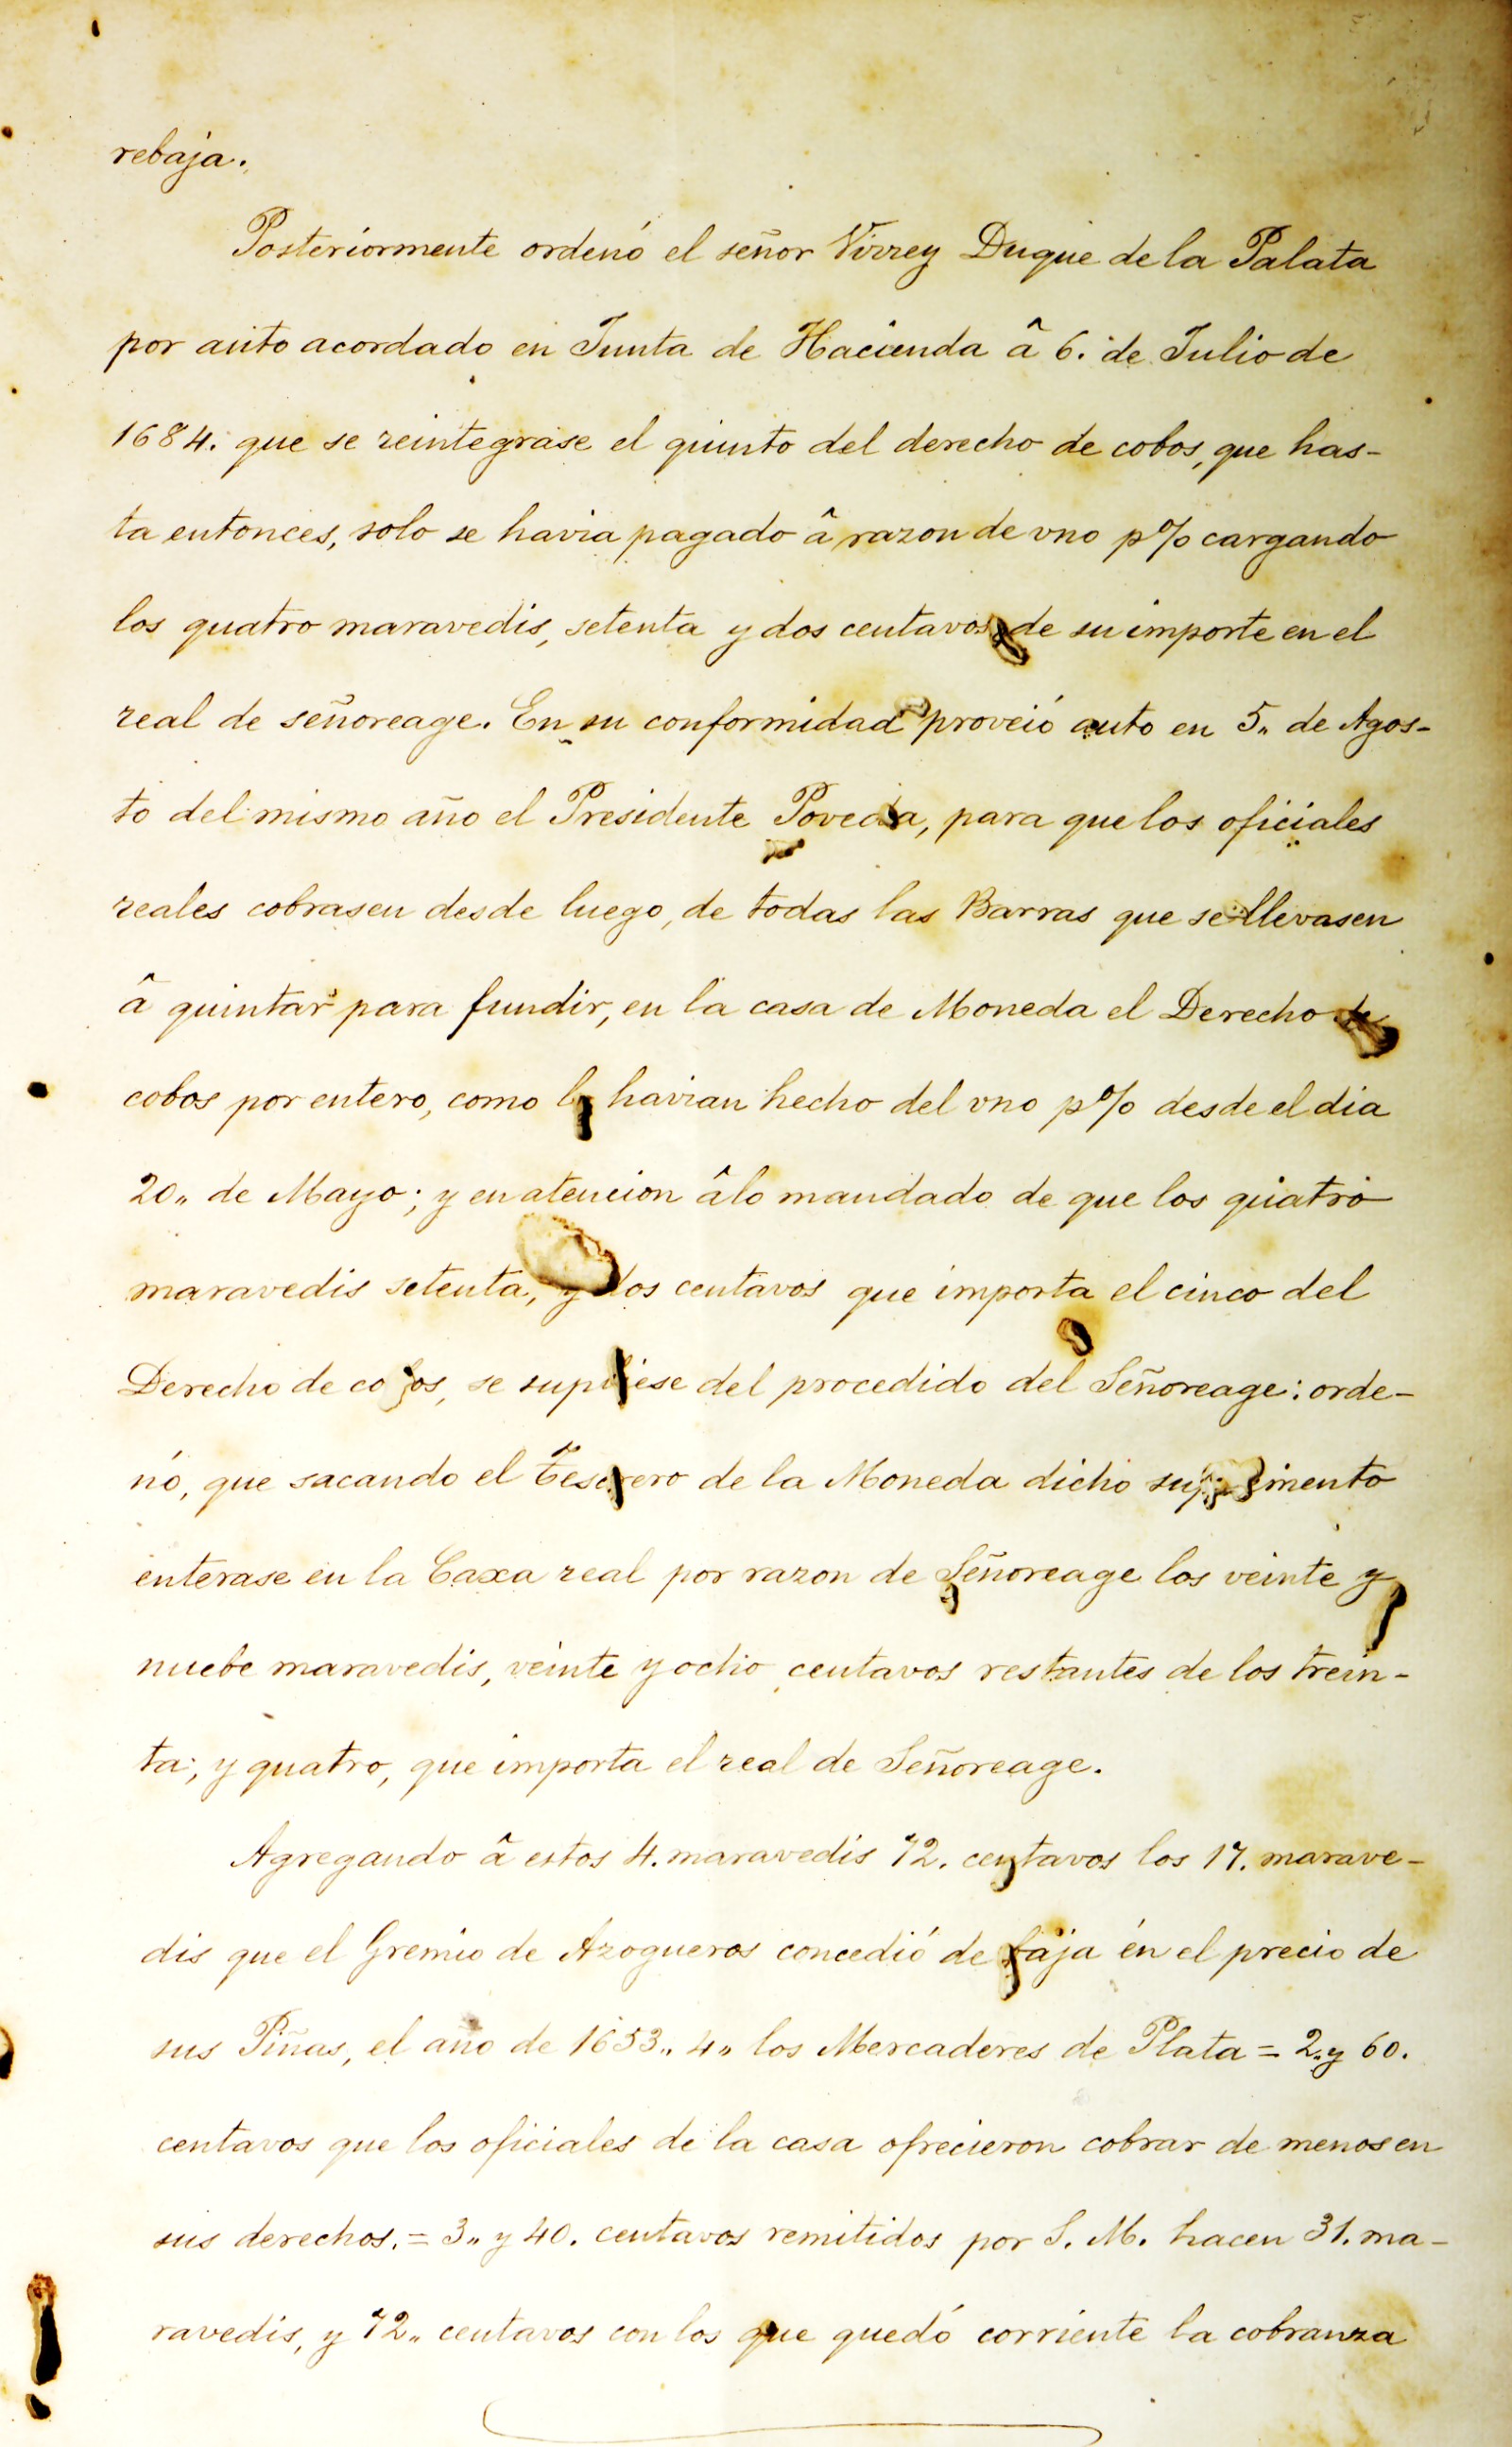 rebaja.
Posteriormente ordenó el señor Virrey Duque de la Palata
por auto acordado en Junta de Hacienda â 6. de Julio de
1684. que se reintegrase el quinto del derecho de cobos, que has-
ta entonces, solo se havia pagado â razon de vno p% cargando
los quatro maravedis, setenta y dos centavos de su importe en el
real de señoreage. En su conformidad proveió auto en 5,, de Agos-
to del mismo año el Presidente Poveda, para que los oficiales
reales cobrasen desde luego, de todas las Barras que se llevasen
â quintar para fundir, en la casa de Moneda el Derecho de
cobos por entero, como lo havian hecho del vno p% desde el dia
20,, de Mayo; y en atencion â lo mandado de que los quatro
maravedis setenta, y dos centavos que importa el cinco del
Derecho de cobos, se supliese del procedido del Señoreage: orde-
nó, que sacando el Tesorero de la Moneda dicho suplemento
enterase en la Caxa real por razon de Señoreage los veinte y
nuebe maravedis, veinte y ocho centavos restantes de los trein-
ta, y quatro, que importa el real de Señoreage.
Agregando â estos 4. maravedis 72. centavos los 17. marave-
dis que el Gremio de Azogueros concedió de baja en el precio de
sus Piñas, el año de 1653,, 4,, los Mercaderes de Plata = 2,, y 60.
centavos que los oficiales de la casa ofrecieron cobrar de menos en
sus derechos. = 3,, y 40. centavos remitidos por S. M. hacen 31. ma-
ravedis, y 72,, centavos con los que quedó corriente la cobranza